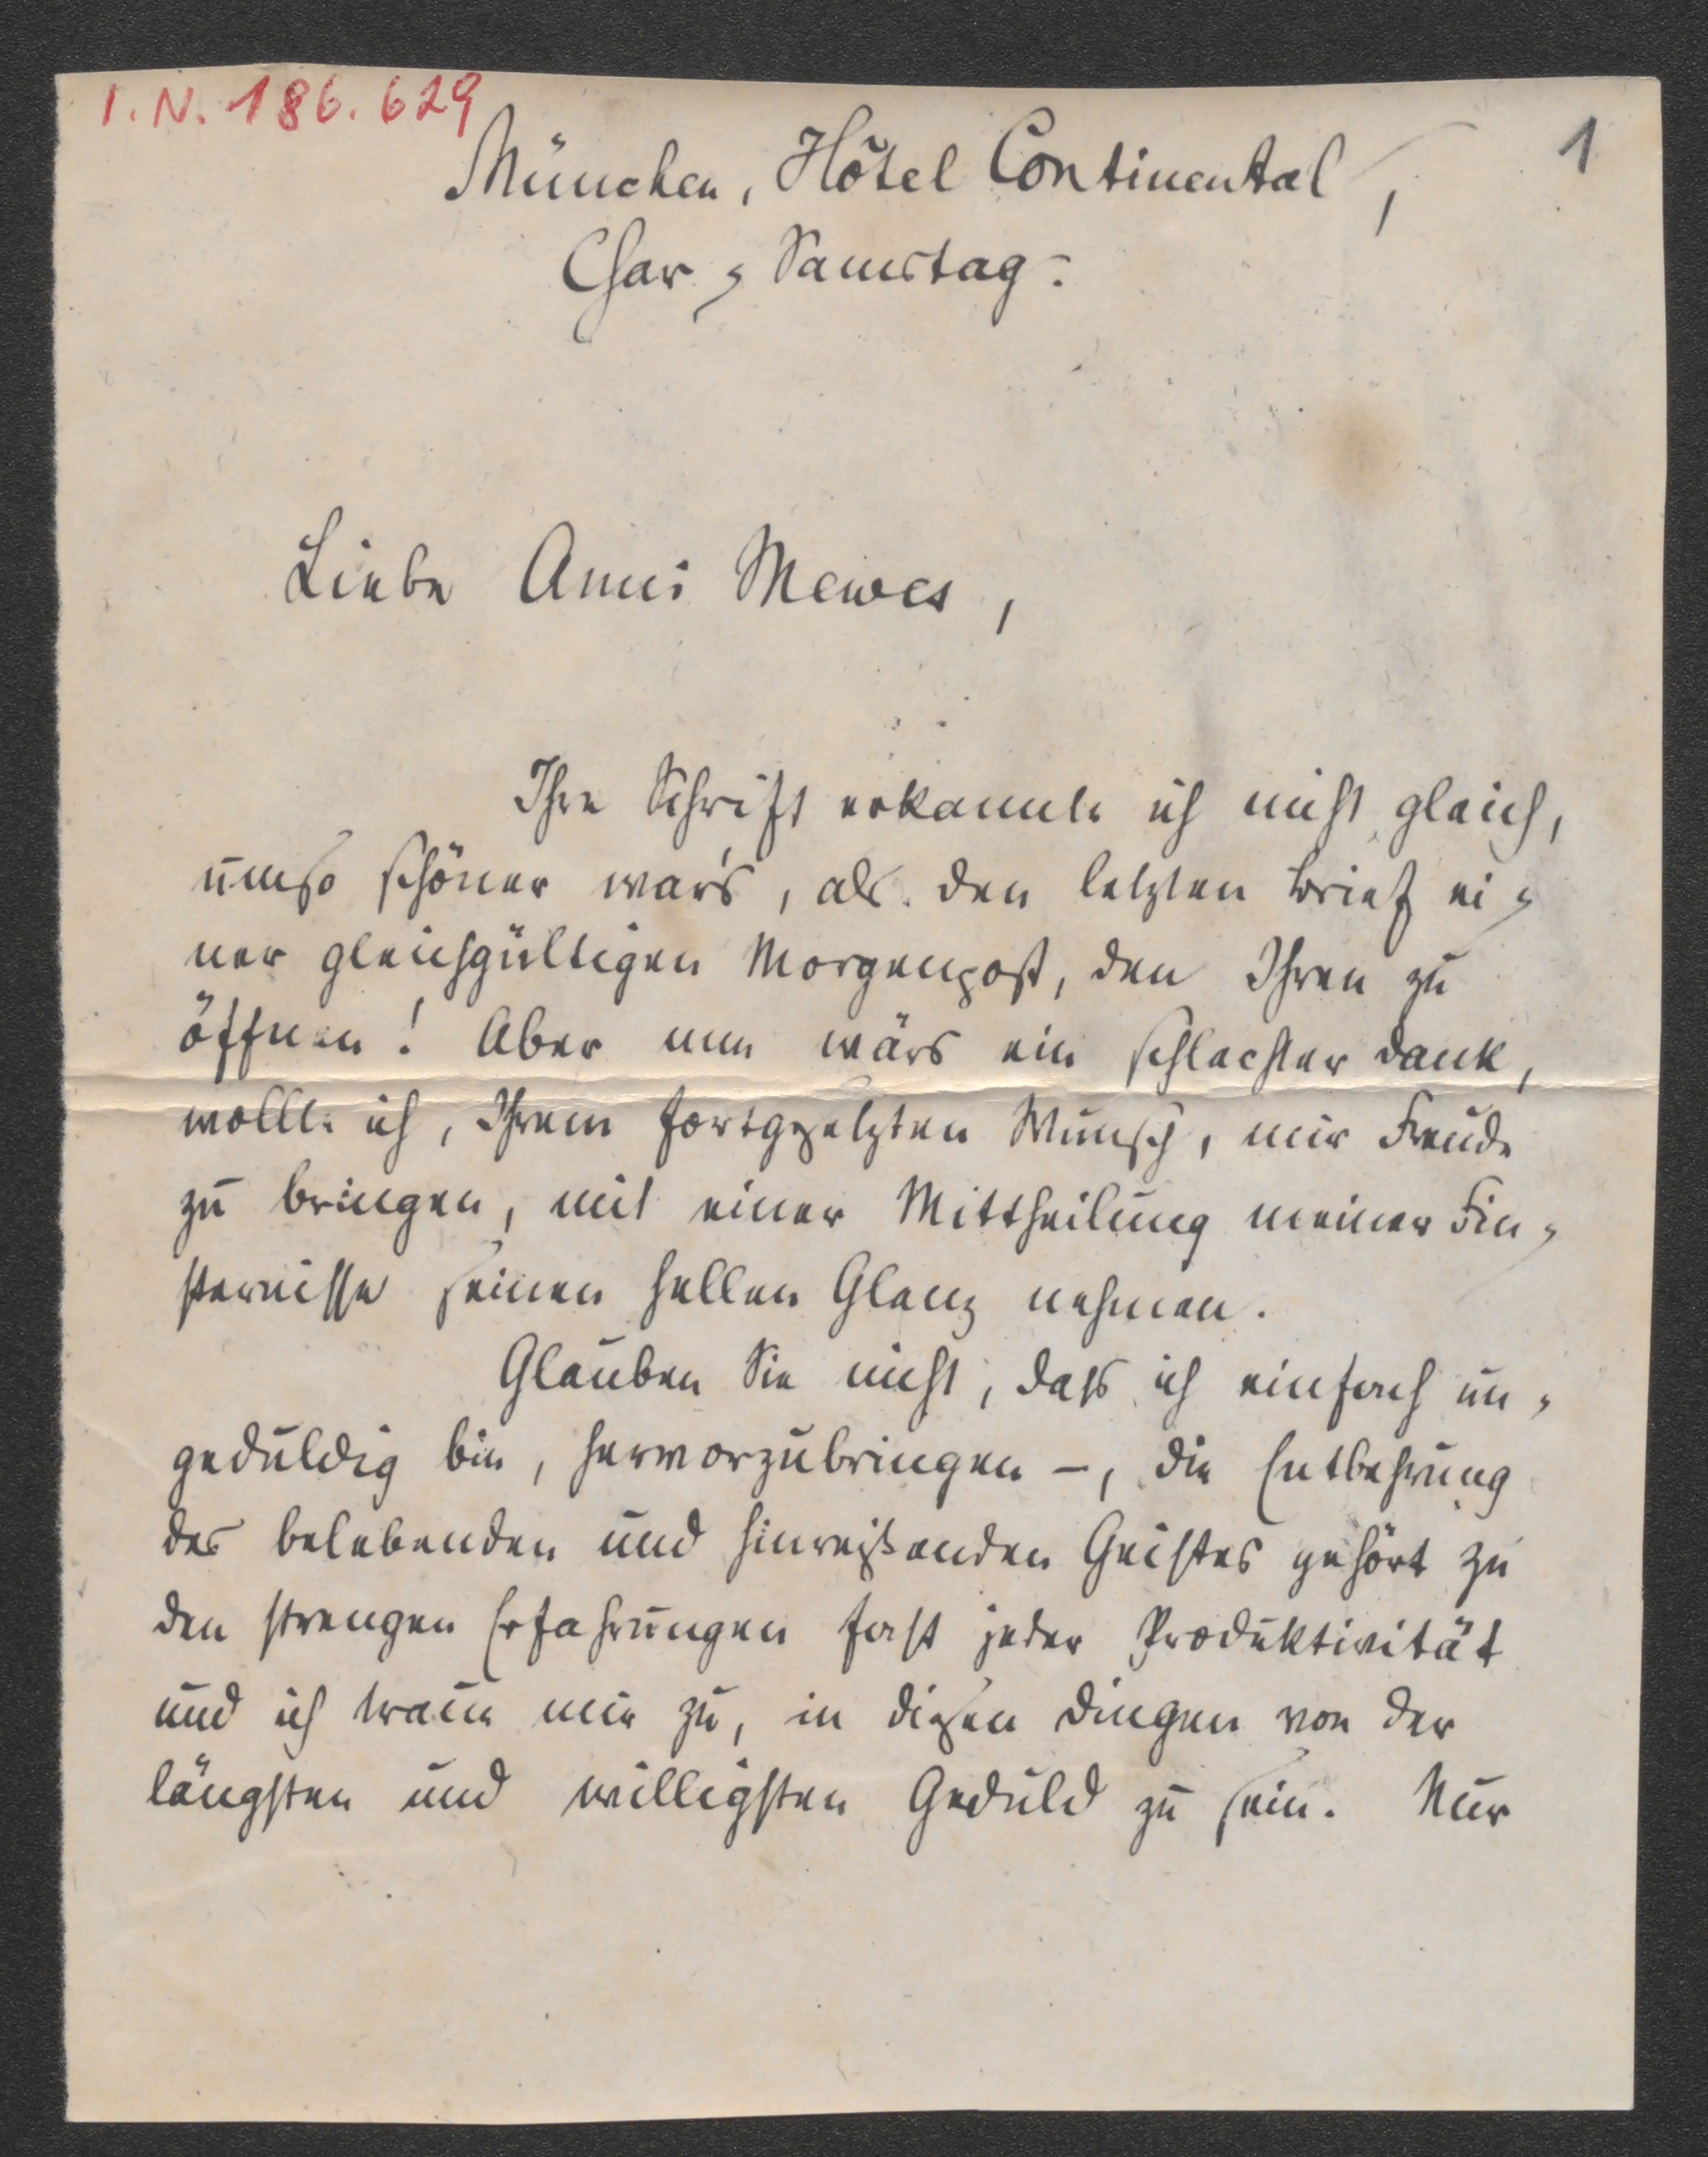 I. N. 186.629
1
München, Hôtel Continental,
Char-Samstag:
Liebe Anni Mewes,
Ihre Schrift erkannte ich nicht gleich,
umso schöner war's, als den letzten Brief ei-
ner gleichgültigen Morgenpost, den Ihren zu
öffnen! Aber nun wärs ein schlechter Dank,
wollte ich, Ihrem fortgesetzten Wunsch, mir Freude
zu bringen, mit einer Mittheilung meiner Fin-
sternisse seinen hellen Glanz nehmen.
Glauben Sie nicht, dass ich einfach un-
geduldig bin, hervorzubringen –, die Entbehrung
des belebenden und hinreißenden Geistes gehört zu
den strengen Erfahrungen fast jeder Produktivität
und ich traue mir zu, in diesen Dingen von der
längsten und willigsten Geduld zu sein. Nur